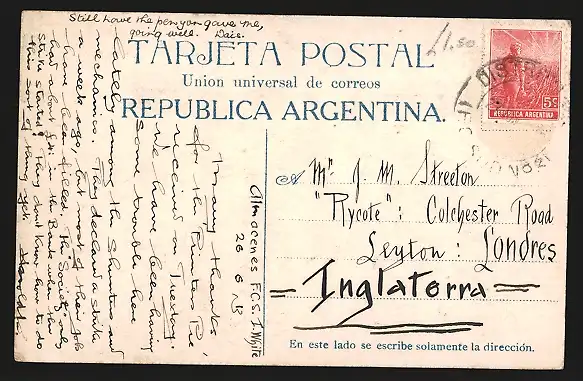 Still have the pen you gave me,
going well. Dais.
TARJETA POSTAL
Union universal de correos
REPUBLICA ARGENTINA.
£1.50
5c
REPUBLICA ARGENTINA
Mr J. M. Streeton
"Rycote": Colchester Road
Leyton: Londres
= Inglaterra =
En este lado se escribe solamente la dirección.
Almacenes F.C.S. I. White
26 6
Many thanks
for the Printers Pie
received on Tuesday
We have been having
some trouble here
lately among the Shunters and
mechanics. They declared a strike
a week ago, but most of their jobs
have been filled. The "Society" only
had about £ in the Bank when the
strike started! They dont know how to do
this sort of thing yet. Harold.